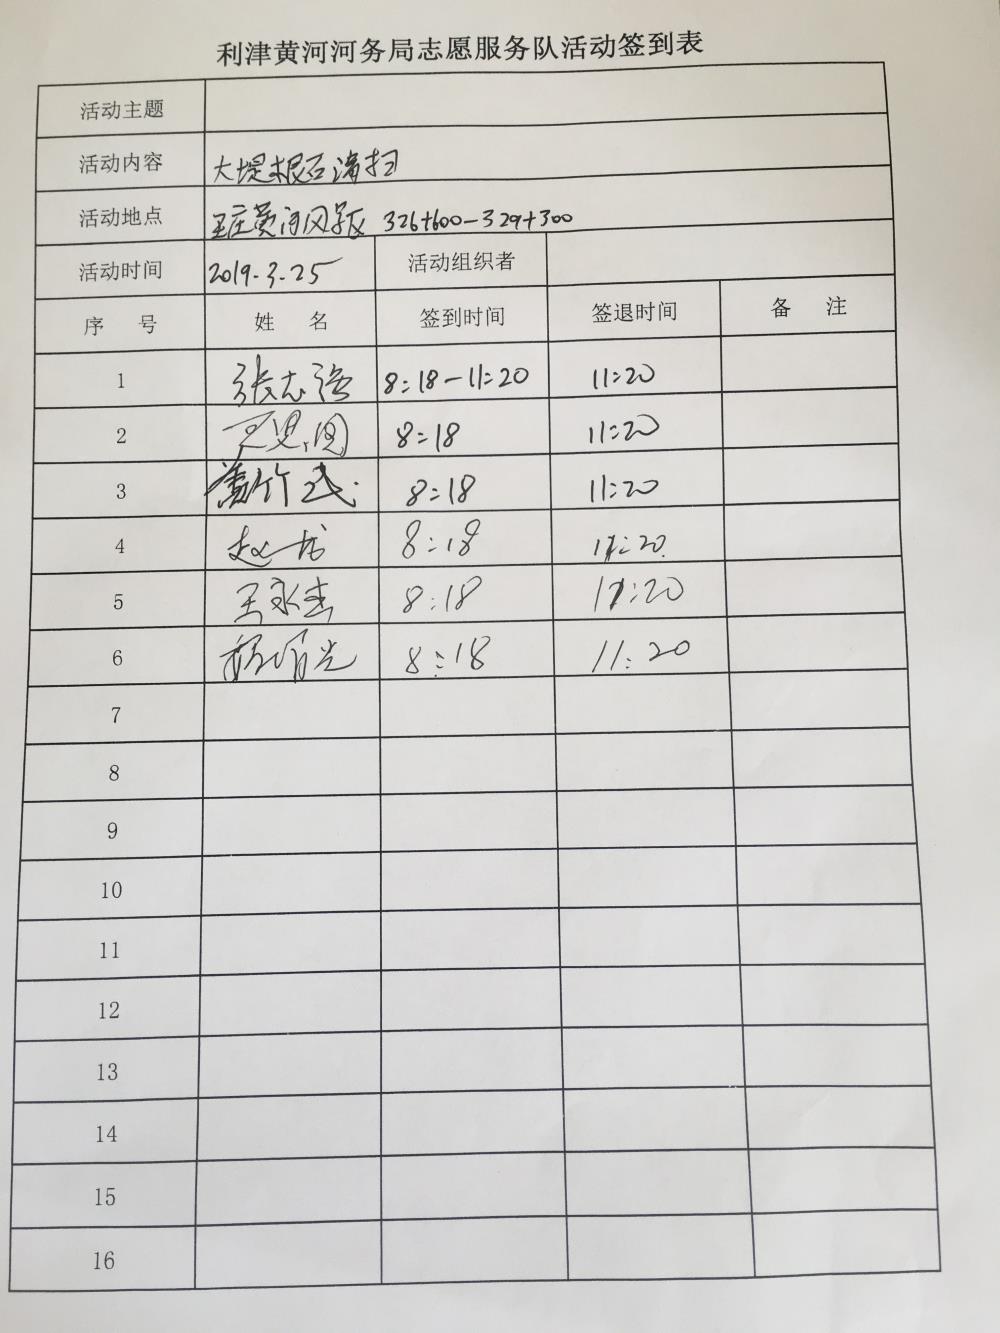 利津黄河河务局志愿服务队活动签到表
活动主题
活动内容 大堤根石清扫
活动地点 王庄黄河风景区 326+600-329+300
活动时间 2019.3.25 活动组织者
序 号 姓 名 签到时间 签退时间 备 注
1 张志强 8:18-11:20 11:20
2 8:18 11:20
3 8:18 11:20
4 赵龙 8:18 11:20
5 王永杰 8:18 11:20
6 8:18 11:20
7
8
9
10
11
12
13
14
15
16